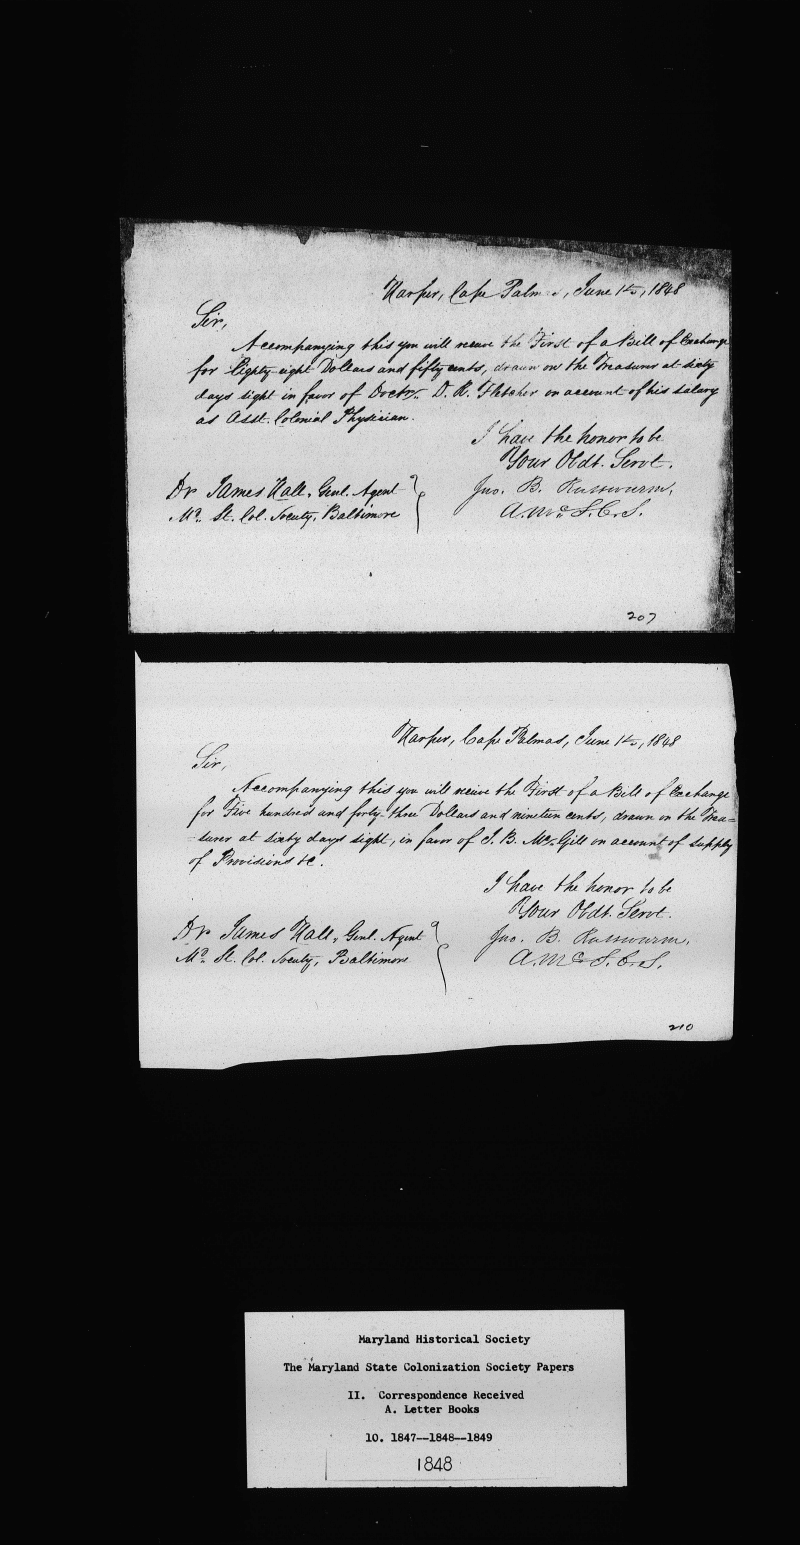 Harper, Cape Palmas, June 1st, 1848
Sir,
Accompanying this you will receive the First of a Bill of Exchange
for Eighty eight Dollars and fifty cents, drawn on the Treasurer at sixty
days sight in favor of Doctr. D. R. Fletcher on account of his salary
as Asst. Colonial Physician.
I have the honor to be
Your Obdt. Servt.
Dr James Hall, Genl. Agent
Jno. B. Russwurm,
Md. St. Col. Society, Baltimore
A. Md. S. C. S.
207
Harper, Cape Palmas, June 1st, 1848
Sir,
Accompanying this you will receive the First of a Bill of Exchange
for Five hundred and forty-three Dollars and nineteen cents, drawn on the Trea=
=surer at sixty days sight, in favor of J. B. McGill on account of supply
of Provisions &c.
I have the honor to be
Your Obdt. Servt.
Dr James Hall, Genl. Agent
Jno. B. Russwurm,
Md. St. Col. Society, Baltimore
A. Md. S. C. S.
210
Maryland Historical Society
The Maryland State Colonization Society Papers
II. Correspondence Received
A. Letter Books
10. 1847--1848--1849
1848